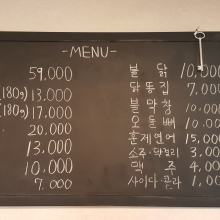 -MENU-
59,000
(180g) 13,000
(180g) 17,000
20,000
13,000
10,000
7,000
불닭 10,000
닭똥집 7,000
불막창 10,000
오돌뼈 10,00
훈제연어 15,000
소주·막걸리 3,000
맥주 4,00
사이다·콜라 1,00